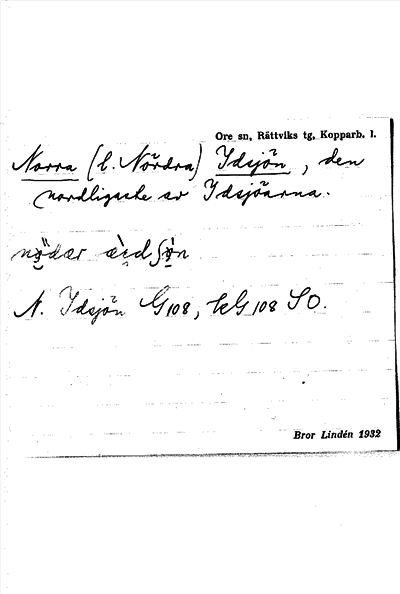 Ore sn, Rättviks tg, Kopparb. l.
Norra (l. Nördra) Idsjön, den
nordligaste av Idsjöarna.
N. Idsjön G108, kG 108 SO.
Bror Lindén 1932